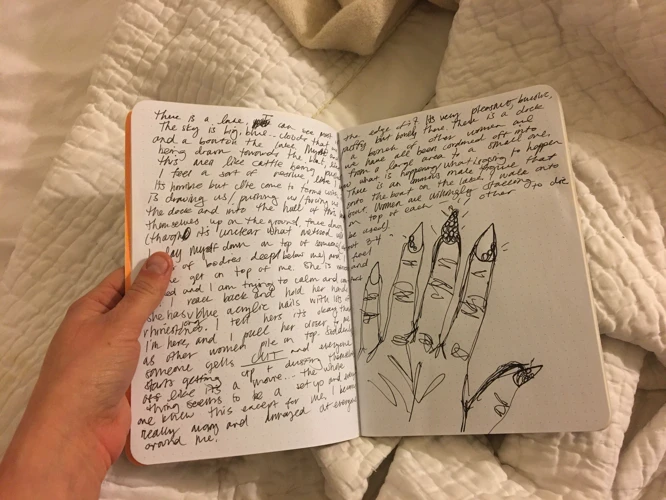 There is a lake, I can see most
The sky is big, blue... clover that
and a boat on the lake. Myself and
being drawn towards the boat, like
this area like cattle being
I feel a sort of passive, like
Its horrible but ive come to terms with
is drawing us / pushing us / forcing us
the dock and into the hull of this
themselves up on the ground, three deep
(though it's unclear what method
lay myself down on top of someone
of bodies deep below me) and
get on top of me. She is
and I am trying to calm and
reach back and hold her hand
She has blue acrylic nails with lots of
rhinestones. I tell hers its okay that
I'm here, and I pull her closer to me
as other women pile on top. Suddenly
someone yells CUT and everyone
starts getting up + dusting themselves
its like its a movie... the whole
thing seems to be a set up and every
one knew this except for me, I become
really angry and enraged at everyone
around me.
the edge of it. Its very pleasant, bucolic,
pretty but lonely there. There is a dock
a bunch of other women and
we have all been cordoned off into
from a large area to a small one.
what is happening, what is going to happen
There is an ominous male figure that
onto the boat on the lake, I walk onto
boat. Women are willingly stacking
on top of each other to die
be used).
3-4
feel
and